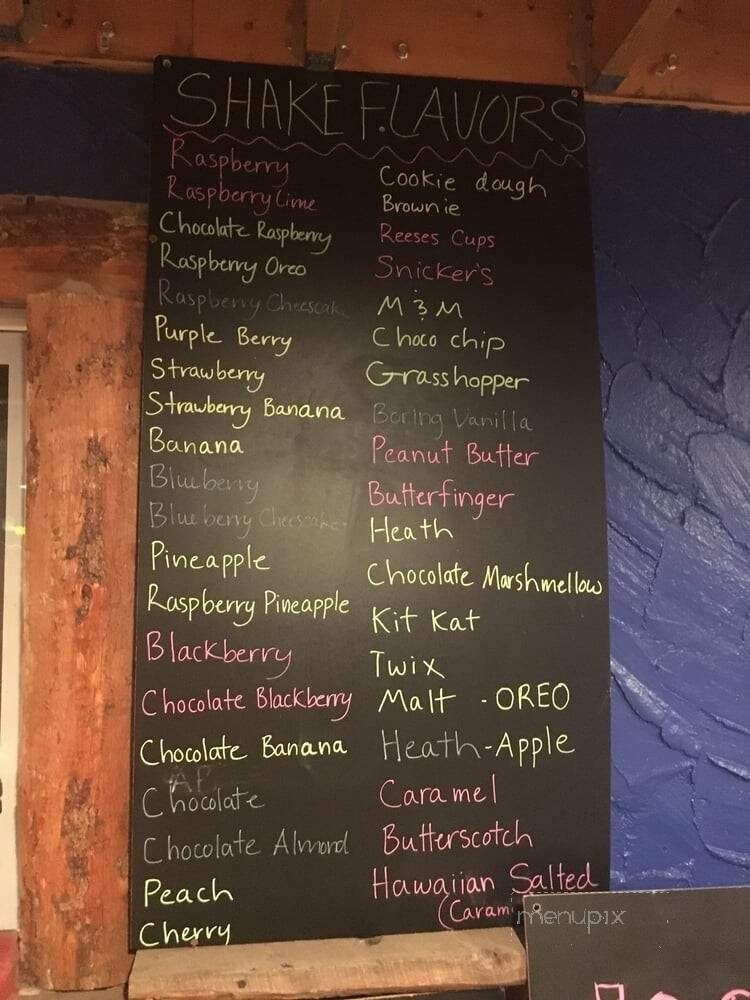 SHAKE FLAVORS
Raspberry
Raspberry Lime
Chocolate Raspberry
Raspberry Oreo
Raspberry Cheescake
Purple Berry
Strawberry
Strawberry Banana
Banana
Blueberry
Blueberry Cheescake
Pineapple
Raspberry Pineapple
Blackberry
Chocolate Blackberry
Chocolate Banana
Chocolate
Chocolate Almond
Peach
Cherry
Cookie dough
Brownie
Reeses Cups
Snicker's
M & M
Choco chip
Grasshopper
Boring Vanilla
Peanut Butter
Butterfinger
Heath
Chocolate Marshmellow
Kit Kat
Twix
Malt - OREO
Heath-Apple
Caramel
Butterscotch
Hawaiian Salted
(Caram
menupix